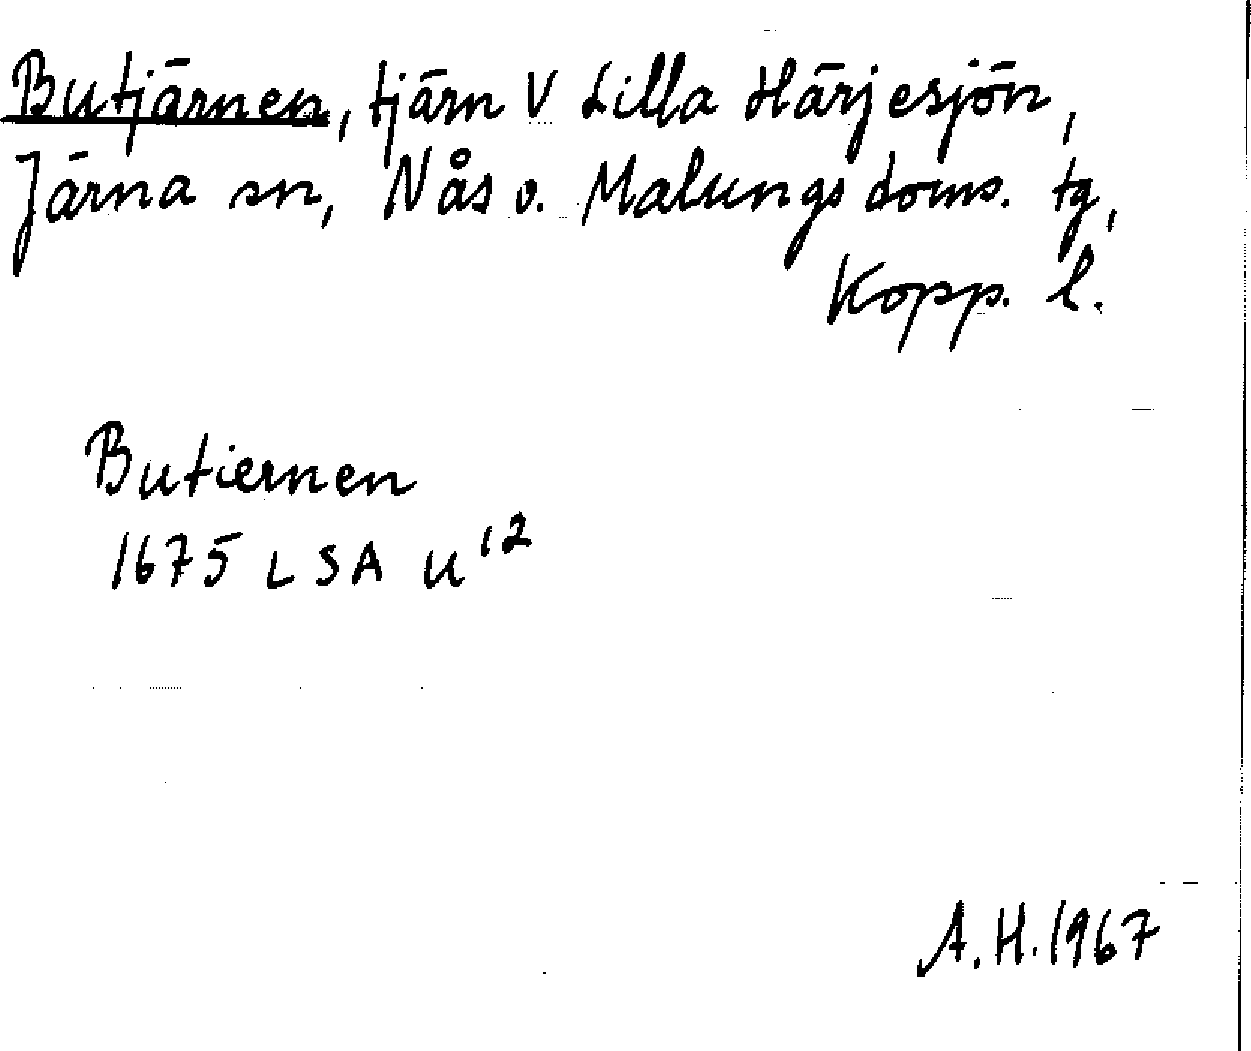 Butjärnen, tjärn V Lilla Härjesjön,
Järna sn, Nås o. Malungs doms. tg,
Kopp. l.
Butiernen
1675 LSA U¹²
A.H. 1967